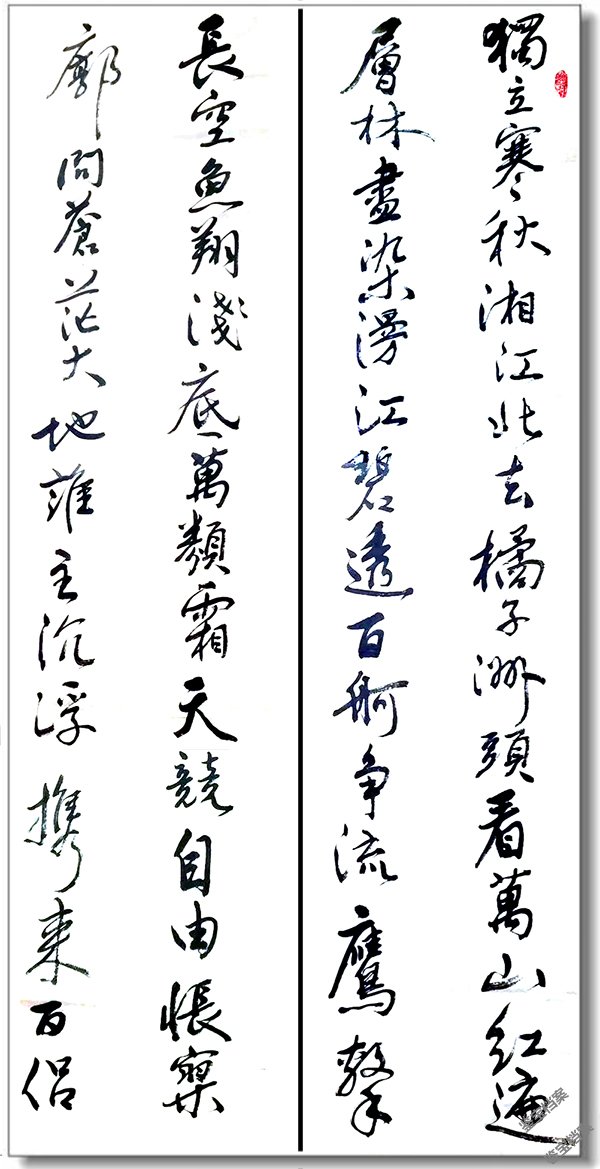 獨立寒秋湘江北去橘子洲頭看萬山紅遍
層林盡染漫江碧透百舸争流鷹擊
長空魚翔淺底萬類霜天競自由悵寥
廓問蒼茫大地誰主沉浮携来百侣